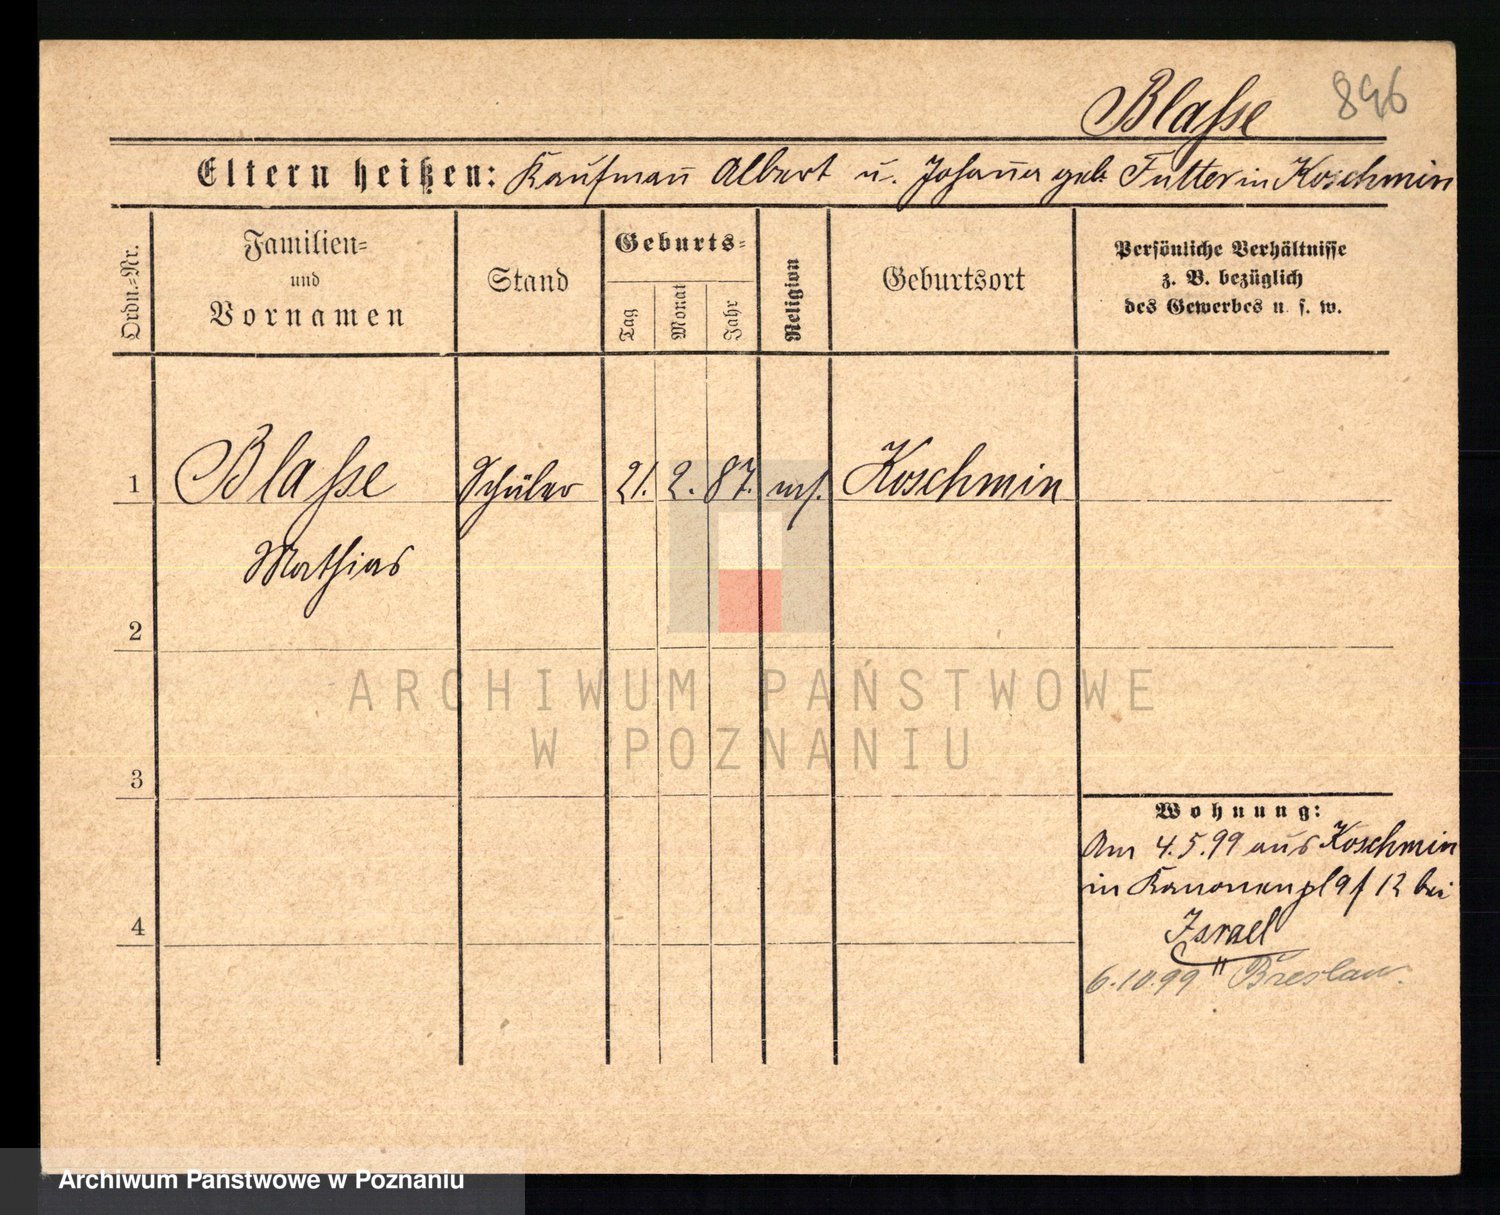 Blasse 896
Eltern heißen: Kaufmann Albert u. Johanna geb. Futter in Koschmin
Ordn.-Nr.
Familien-
und
Vornamen
Stand
Geburts-
Tag
Monat
Jahr
Religion
Geburtsort
Persönliche Verhältnisse
z. B. bezüglich
des Gewerbes u. s. w.
1 Blasse Schüler 21. 2. 87. mos. Koschmin
Mathias
2
ARCHIWUM PAŃSTWOWE
W POZNANIU
3
Wohnung:
Am 4.5.99 aus Koschmin
in Kanonenpl 9 / 12 bei
4
Israel
6.10.99 " Breslau.
Archiwum Państwowe w Poznaniu